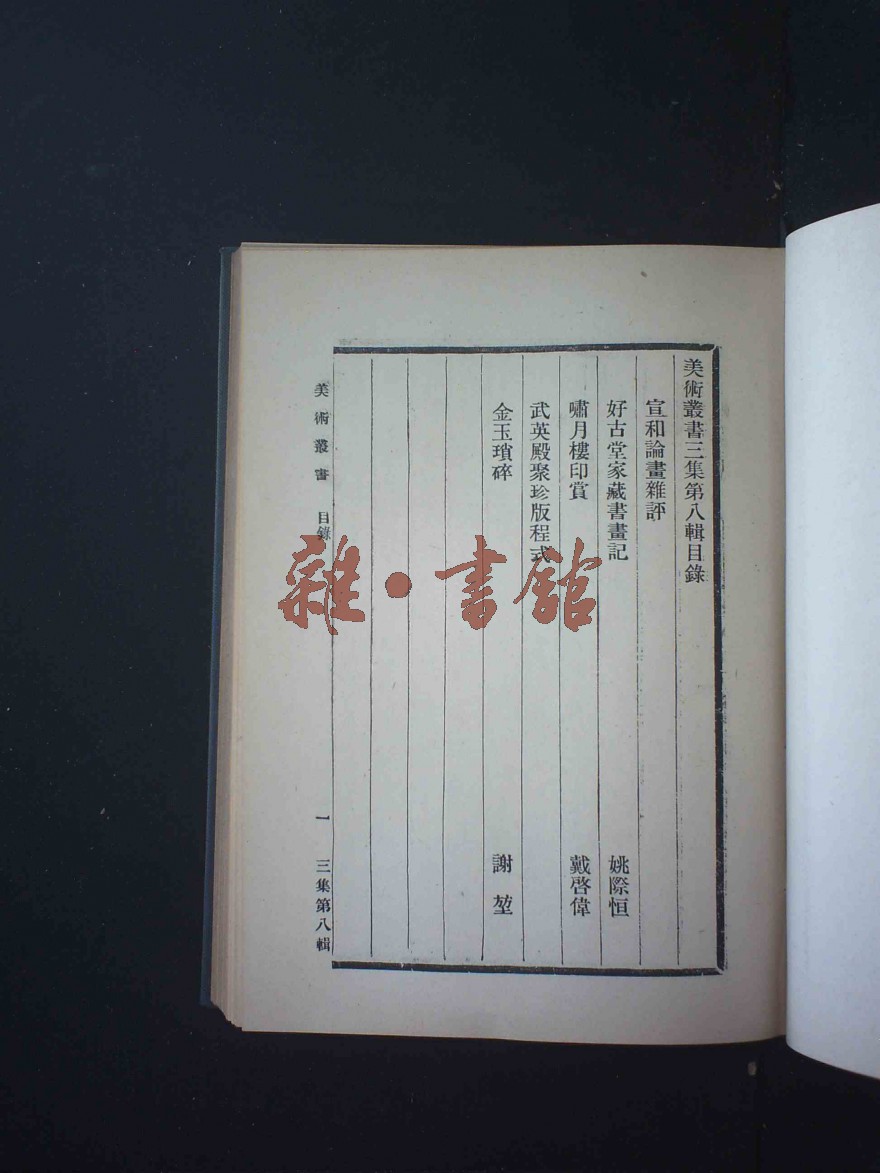 美術叢書三集第八輯目錄
宣和論畫雜評
好古堂家藏書畫記 姚際恒
嘯月樓印賞 戴啓偉
武英殿聚珍版程式
金玉瑣碎 謝堃
美術叢書 目錄 一 三集第八輯
雜·書館